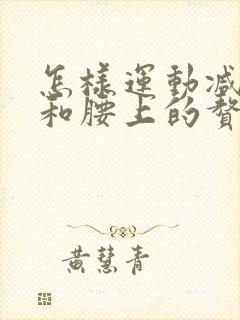 怎樣運動減
和腰上的贅
黃慧青